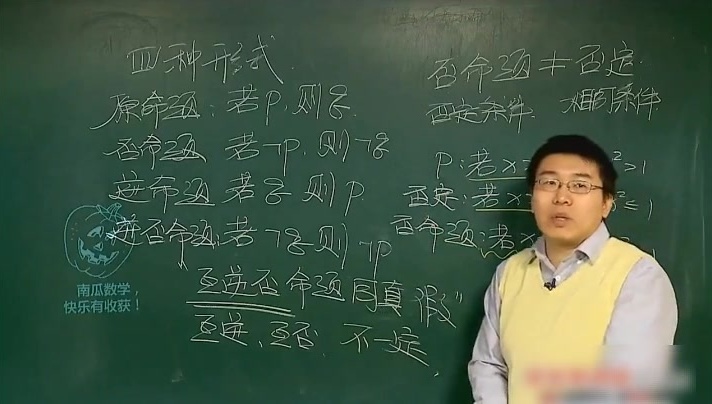 四种形式
原命题：若p，则q
否命题 若¬p，则¬q
逆命题 若q 则p
逆否命题：若¬q则¬p
"互逆否命题同真假"
互逆、互否，不一定，
否命题≠否定
否定条件
p：若x
²>1
否定：若x
²≤1
否命题：若x
1
南瓜数学，
快乐有收获！